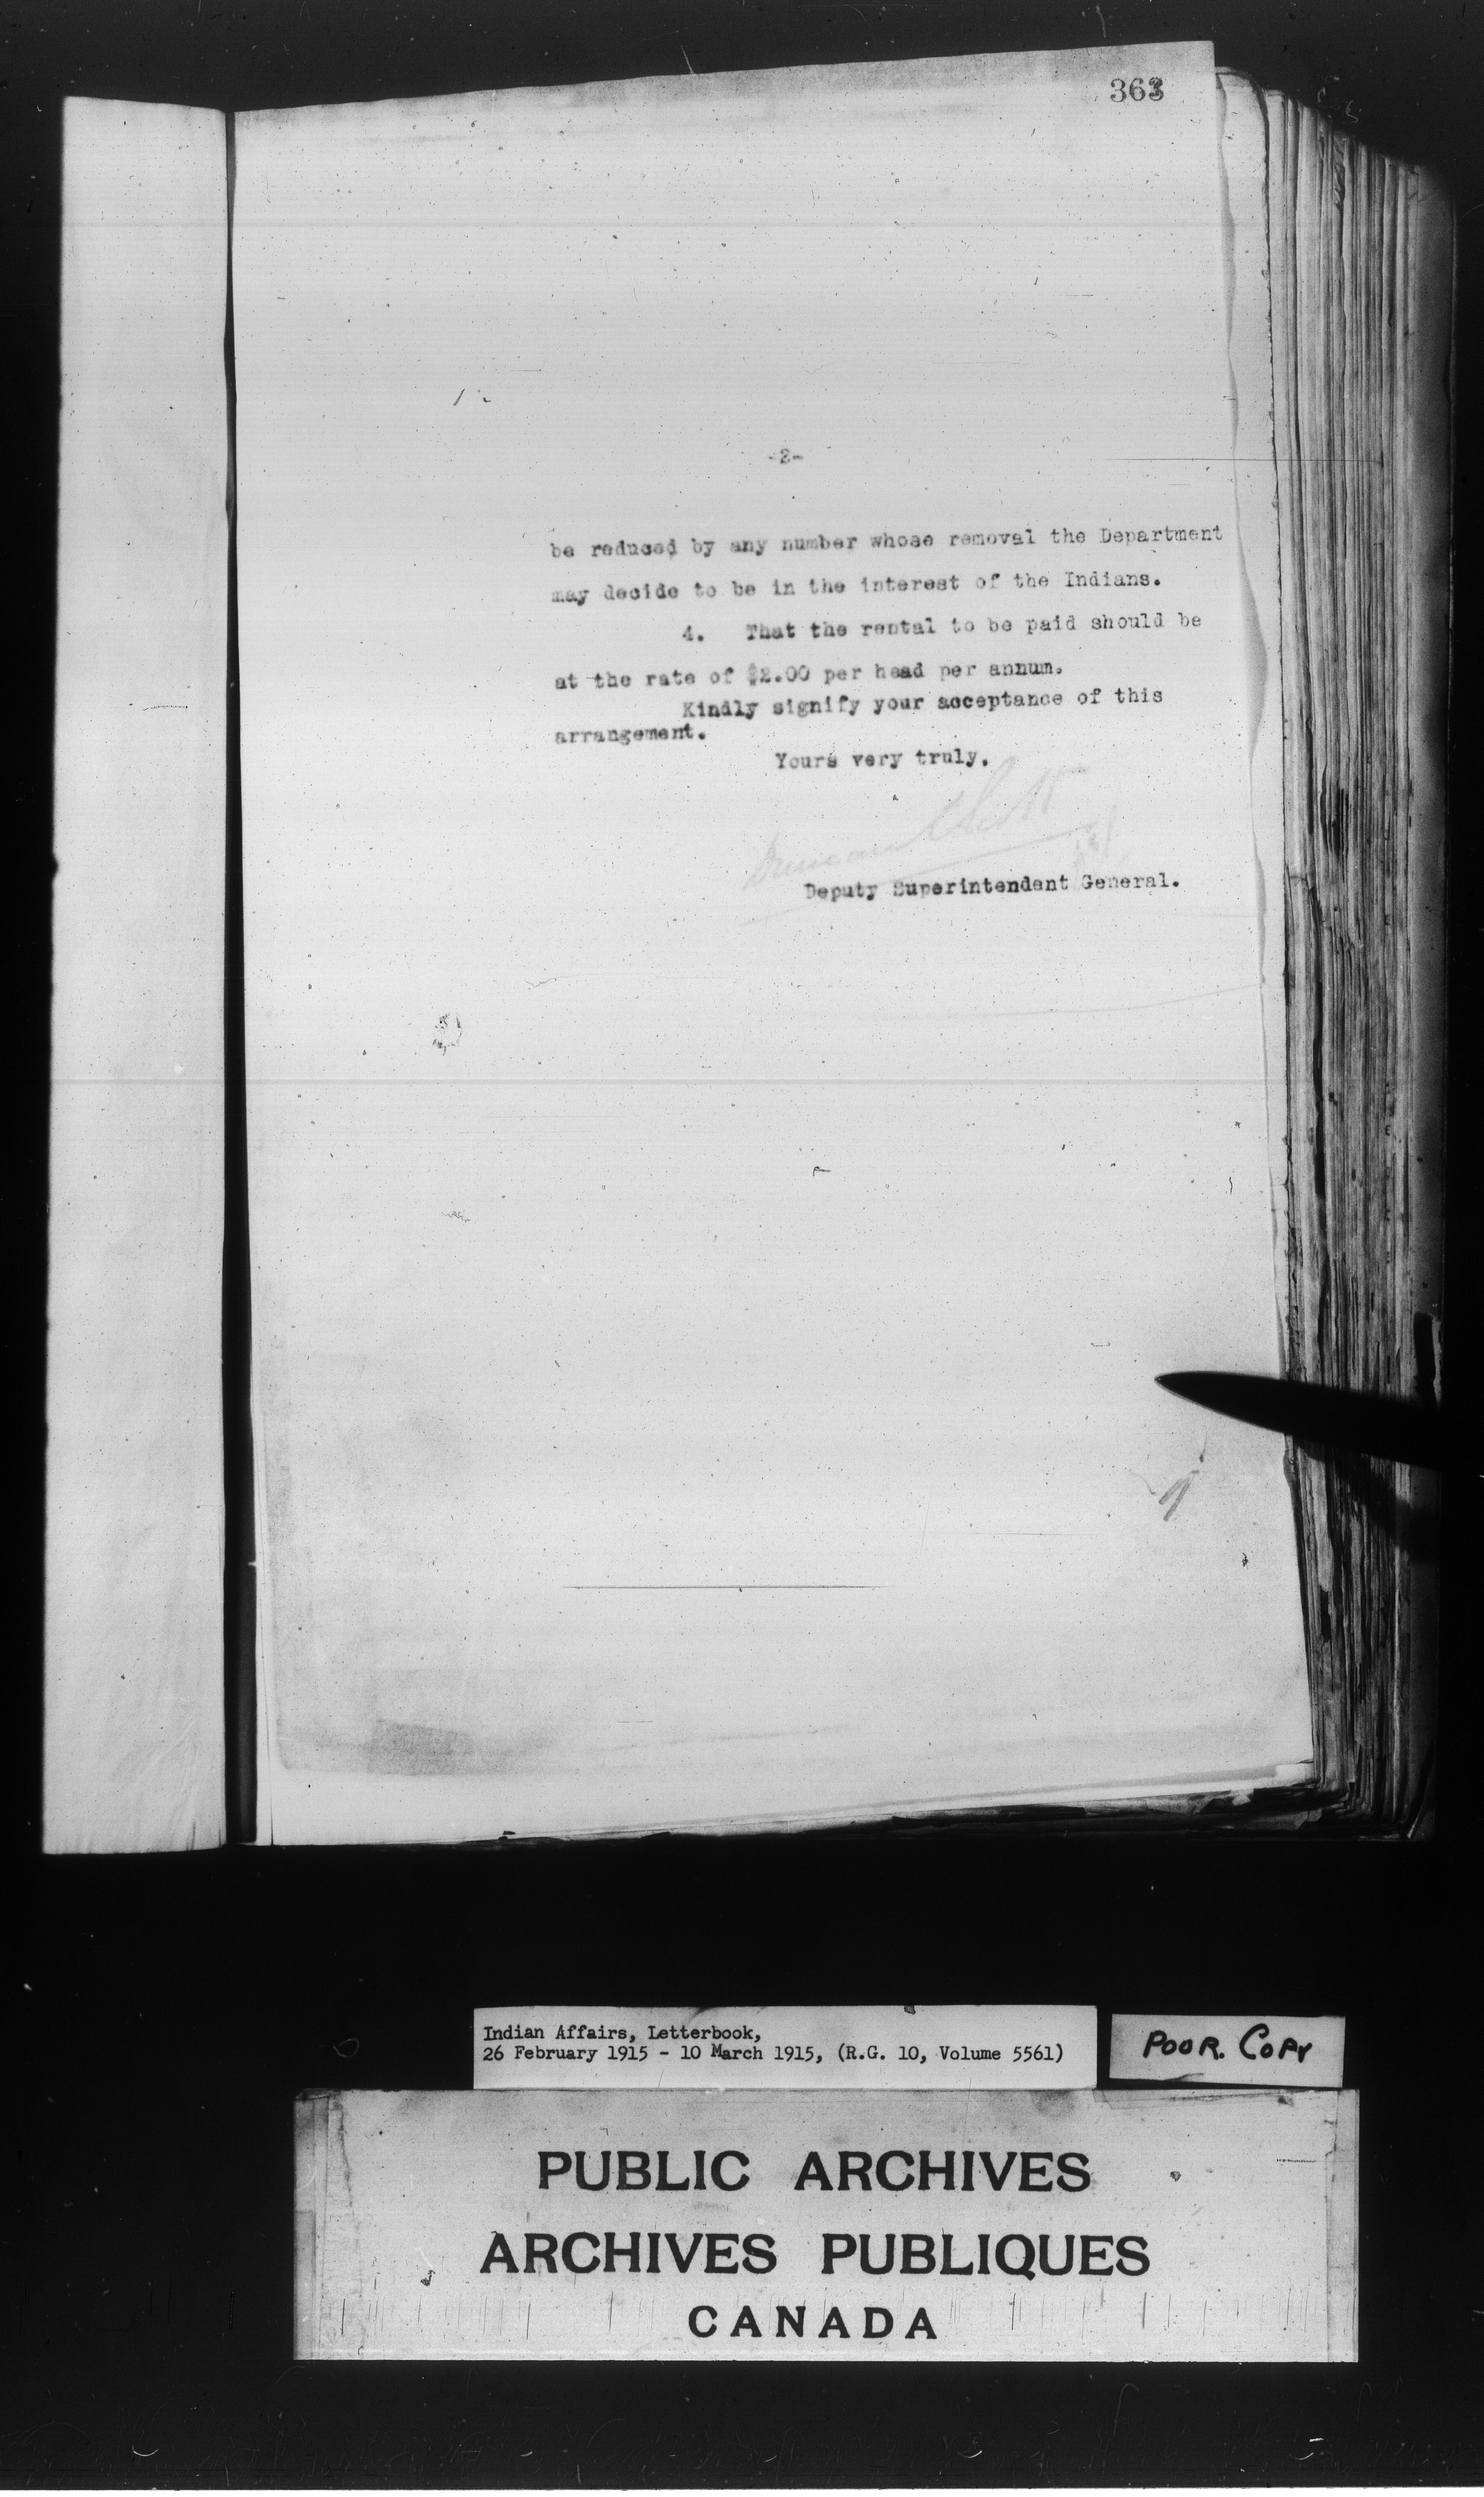 363
-2-
be reduced by any number whose removal the Department
may decide to be in the interest of the Indians.
4. That the rental to be paid should be
at the rate of $2.00 per head per annum.
Kindly signify your acceptance of this
arrangement.
Yours very truly.
Duncan C Scott
Deputy Superintendent General.
Indian Affairs, Letterbook,
26 February 1915 - 10 March 1915, (R.G. 10, Volume 5561)
POOR. COPY
PUBLIC ARCHIVES
ARCHIVES PUBLIQUES
CANADA